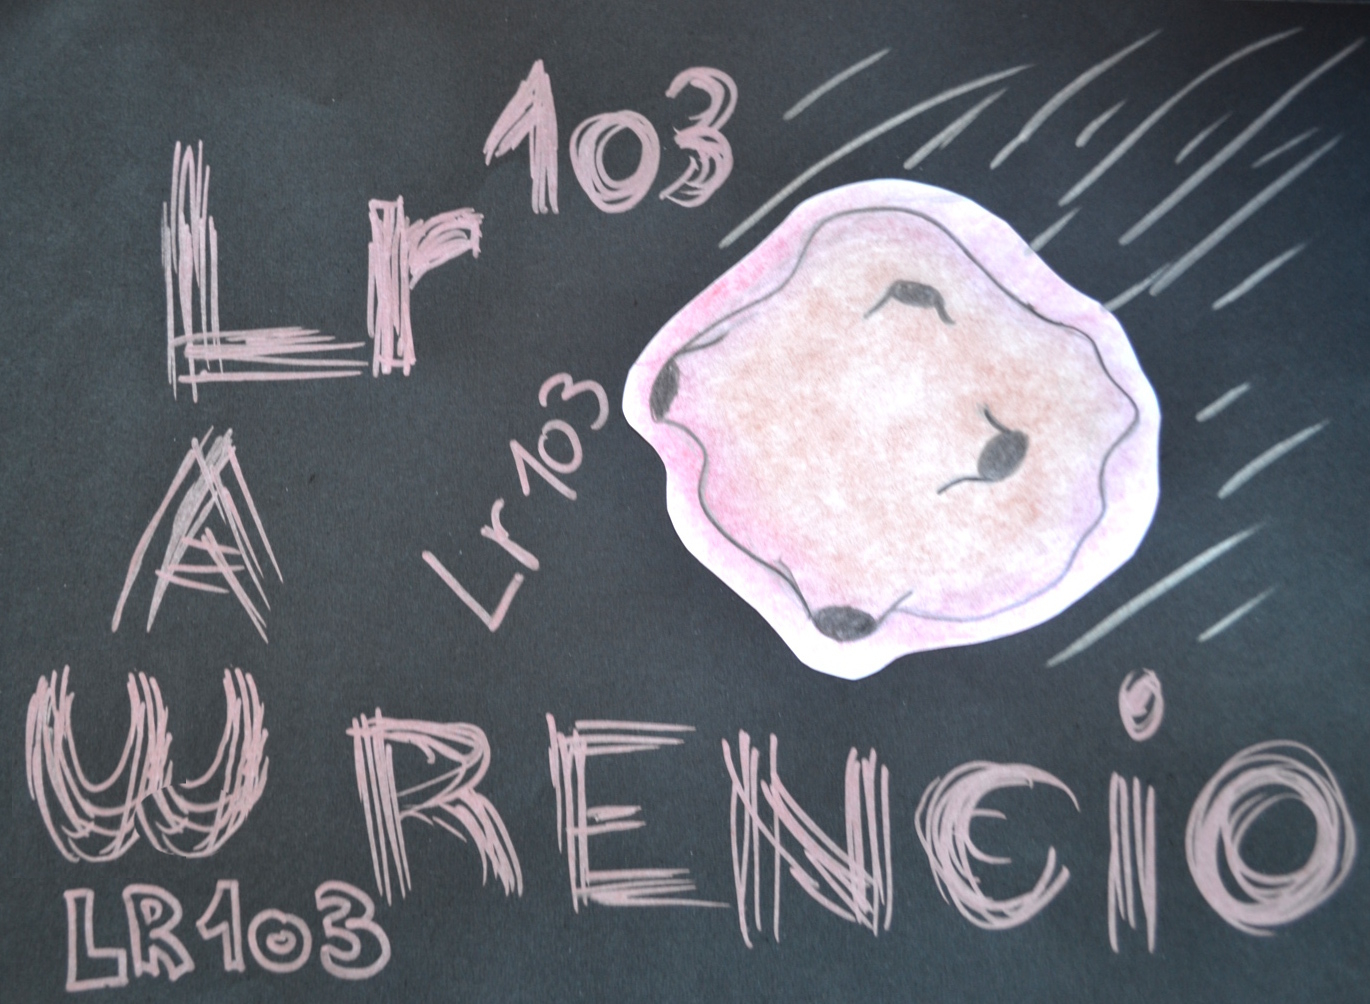 Lr 103
Lr 103
LAWRENCiO
LR103